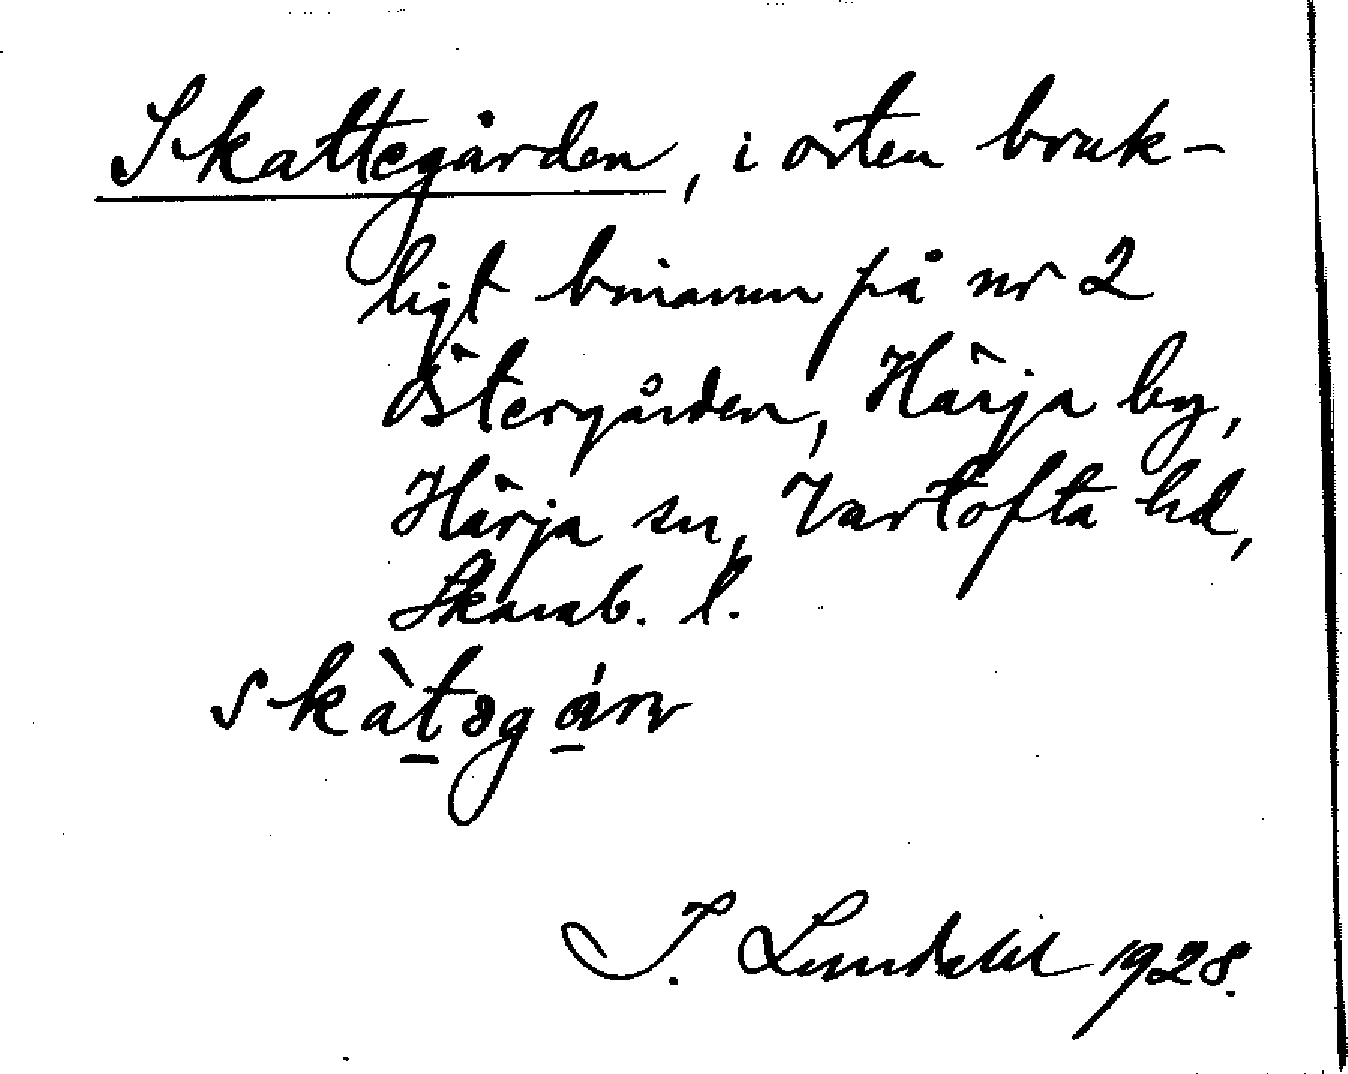 Skattegården, i orten bruk-
ligt binamn på nr 2
Östergården, Härja by,
Härja sn, Vartofta hd,
Skarab. l.
skàtəgár
I. Lundahl 1928.